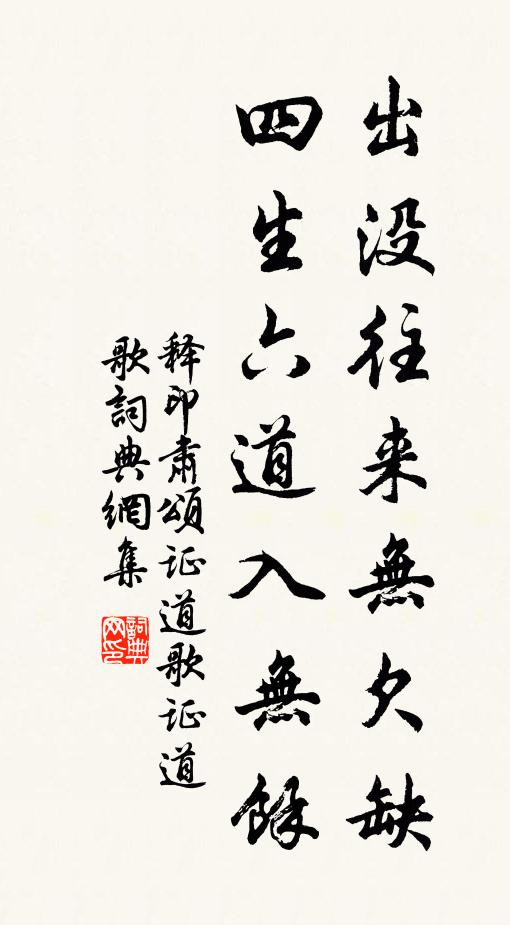 出没往来無欠缺
四生六道入無餘
释印肃頌证道歌证道
歌詞典網集
詞典网印